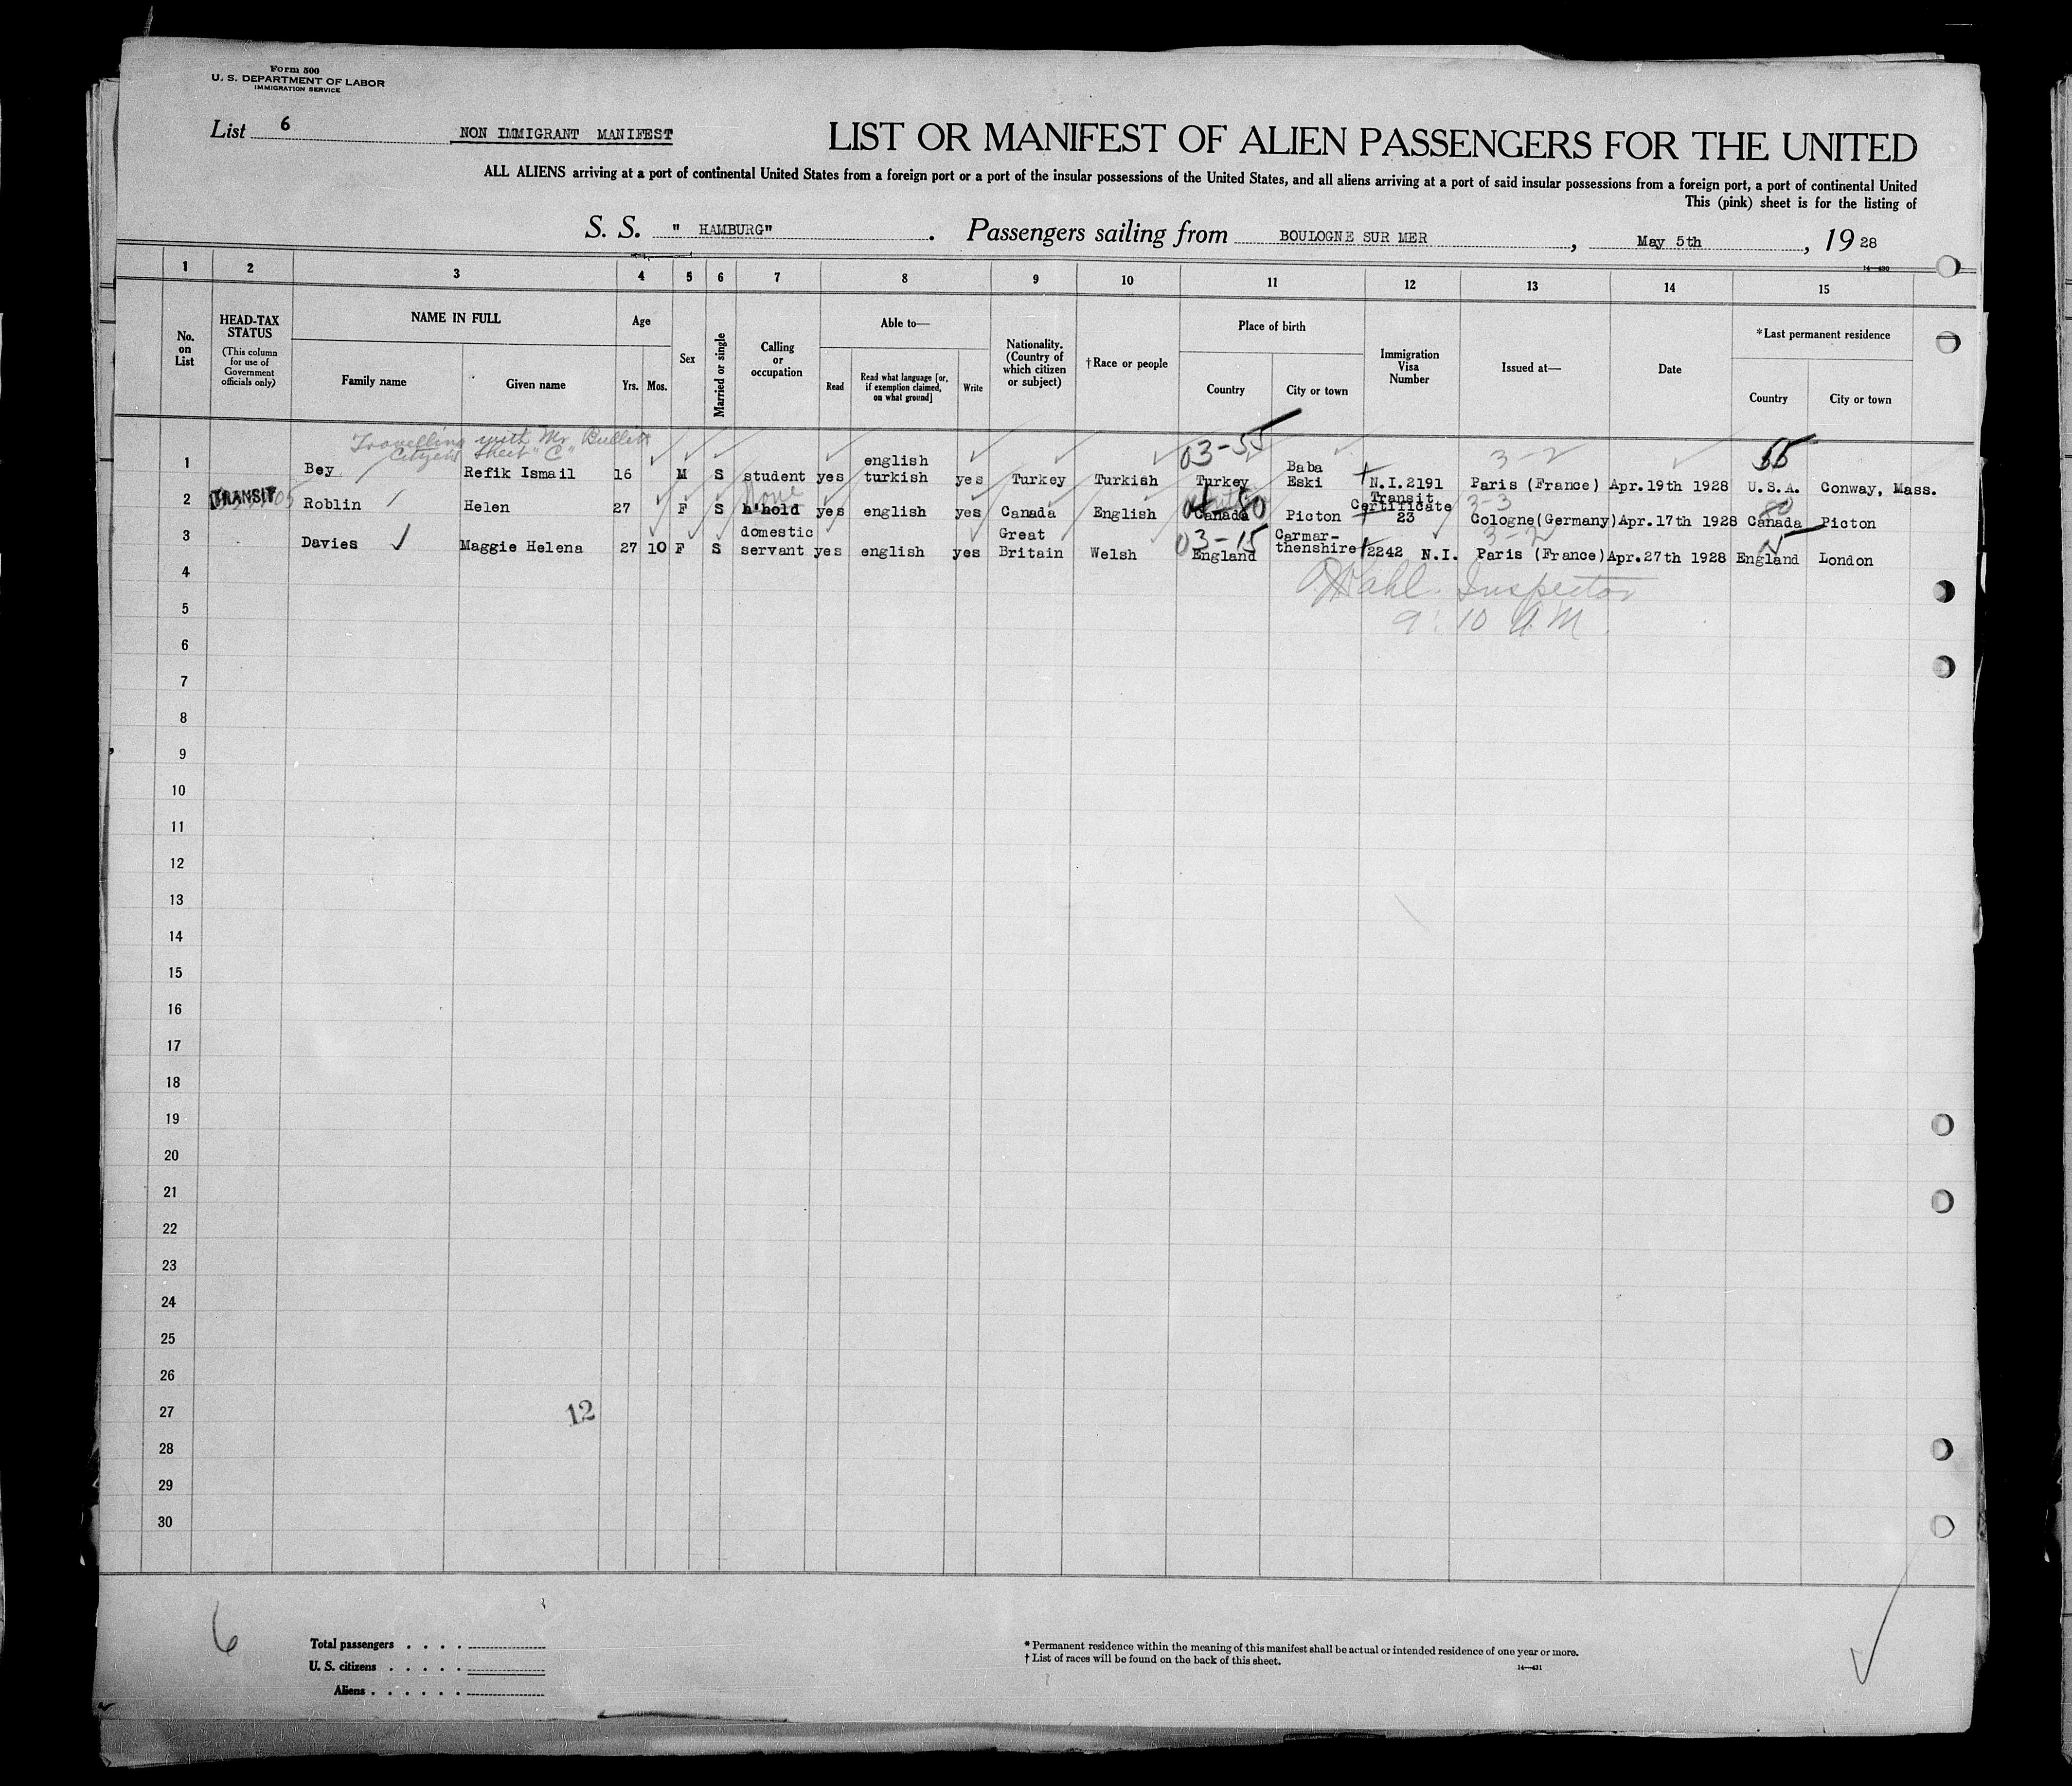 Form 500
U. S. DEPARTMENT OF LABOR
IMMIGRATION SERVICE
List 6
NON IMMIGRANT MANIFEST
LIST OR MANIFEST OF ALIEN PASSENGERS FOR THE UNITED
ALL ALIENS arriving at a port of continental United States from a foreign port or a port of the insular possessions of the United States, and all aliens arriving at a port of said insular possessions from a foreign port, a port of continental United
This (pink) sheet is for the listing of
S. S. " HAMBURG" . Passengers sailing from BOULOGNE SUR MER , May 5th , 1928
14—430
1 2 3 4 5 6 7 8 9 10 11 12 13 14 15
No. on List
HEAD-TAX STATUS
(This column for use of Government officials only)
NAME IN FULL
Family name
Given name
Age
Yrs. Mos.
Sex
Married or single
Calling or occupation
Able to—
Read
Read what language [or, if exemption claimed, on what ground]
Write
Nationality. (Country of which citizen or subject)
†Race or people
Place of birth
Country
City or town
Immigration Visa Number
Issued at—
Date
*Last permanent residence
Country
City or town
Travelling with Mr. Bullitt
Citizens Sheet "C"
03-55 3-2 55
1 Bey Refik Ismail 16 M S student yes english turkish yes Turkey Turkish Turkey Baba Eski N.I.2191 Paris (France) Apr.19th 1928 U.S.A. Conway, Mass.
None 3-3 80
2 TRANSIT Roblin Helen 27 F S h'hold yes english yes Canada English Canada Picton Transit Certificate 23 Cologne(Germany) Apr.17th 1928 Canada Picton
03-15 3-2
3 Davies Maggie Helena 27 10 F S domestic servant yes english yes Great Britain Welsh England Carmar-thenshire 2242 N.I. Paris (France) Apr.27th 1928 England London
4
Wahl Inspector
5
9:10 AM.
6
7
8
9
10
11
12
13
14
15
16
17
18
19
20
21
22
23
24
25
26
27
12
28
29
30
6
Total passengers . . . .
U. S. citizens . . . . .
Aliens . . . . . .
* Permanent residence within the meaning of this manifest shall be actual or intended residence of one year or more.
† List of races will be found on the back of this sheet.
14—431